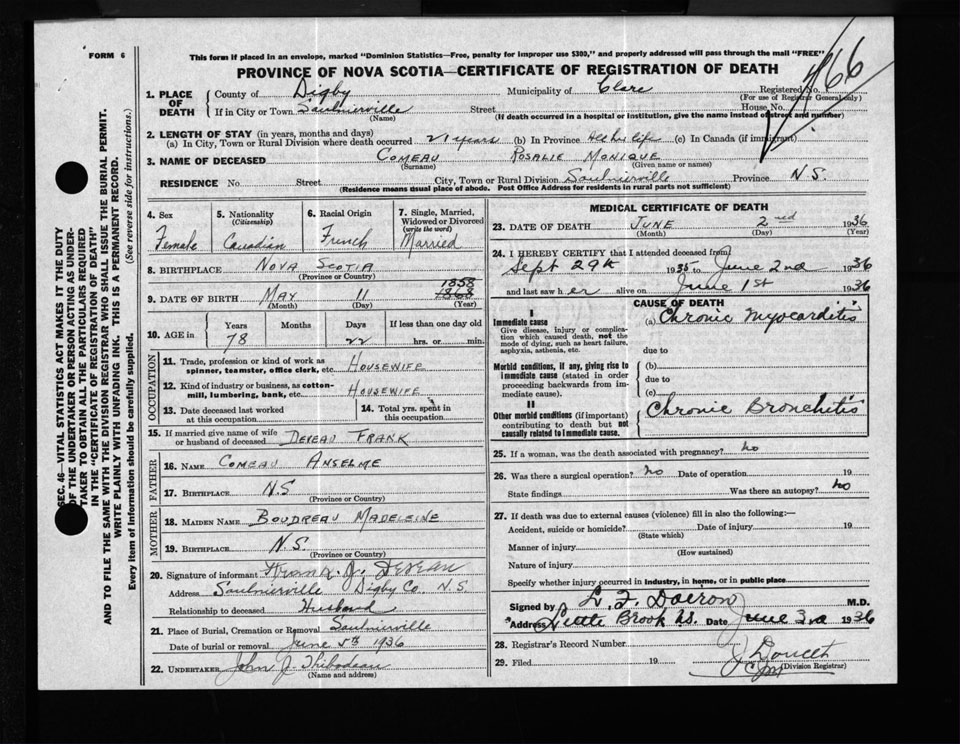 FORM 6
This form if placed in an envelope, marked "Dominion Statistics—Free, penalty for improper use $300," and properly addressed will pass through the mail "FREE"
PROVINCE OF NOVA SCOTIA—CERTIFICATE OF REGISTRATION OF DEATH
466
1. PLACE OF DEATH
County of Digby Municipality of Clare Registered No.
(For use of Registrar General only)
If in City or Town Saulnierville Street House No.
(Name) (If death occurred in a hospital or institution, give the name instead of street and number)
2. LENGTH OF STAY (in years, months and days)
(a) In City, Town or Rural Division where death occurred years (b) In Province All his life (c) In Canada (if immigrant)
3. NAME OF DECEASED COMEAU ROSALIE MONIQUE
(Surname) (Given name or names)
RESIDENCE No. Street City, Town or Rural Division Saulnierville Province N.S.
(Residence means usual place of abode. Post Office Address for residents in rural parts not sufficient)
SEC. 46—VITAL STATISTICS ACT MAKES IT THE DUTY
OF THE UNDERTAKER OR PERSON ACTING AS UNDER-
TAKER TO OBTAIN ALL THE PARTICULARS REQUIRED
IN THE "CERTIFICATE OF REGISTRATION OF DEATH"
AND TO FILE THE SAME WITH THE DIVISION REGISTRAR WHO SHALL ISSUE THE BURIAL PERMIT.
WRITE PLAINLY WITH UNFADING INK. THIS IS A PERMANENT RECORD.
Every item of information should be carefully supplied. (See reverse side for instructions.)
4. Sex
Female
5. Nationality
(Citizenship)
Canadian
6. Racial Origin
French
7. Single, Married,
Widowed or Divorced
(write the word)
Married
8. BIRTHPLACE NOVA SCOTIA
(Province or Country)
9. DATE OF BIRTH MAY 11 1858
1868
(Month) (Day) (Year)
10. AGE in Years Months Days If less than one day old
78 22 hrs. or min.
OCCUPATION
11. Trade, profession or kind of work as
spinner, teamster, office clerk, etc. HOUSEWIFE
12. Kind of industry or business, as cotton-
mill, lumbering, bank, etc. HOUSEWIFE
13. Date deceased last worked
at this occupation
14. Total yrs. spent in
this occupation
15. If married give name of wife
or husband of deceased DEVEAU FRANK
FATHER
16. NAME COMEAU ANSELME
17. BIRTHPLACE N.S
(Province or Country)
MOTHER
18. MAIDEN NAME BOUDREAU MADELEINE
19. BIRTHPLACE N.S.
(Province or Country)
20. Signature of informant Frank J. DEVEAU
Address Saulnierville Digby Co. N.S.
Relationship to deceased Husband
21. Place of Burial, Cremation or Removal Saulnierville
Date of burial or removal June 5th 1936
22. UNDERTAKER John J Thibodeau
(Name and address)
MEDICAL CERTIFICATE OF DEATH
23. DATE OF DEATH JUNE 2nd 1936
(Month) (Day) (Year)
24. I HEREBY CERTIFY that I attended deceased from
Sept 29th 1935 to June 2nd 1936
and last saw her alive on June 1st 1936
CAUSE OF DEATH
I
Immediate cause
Give disease, injury or complica-
tion which caused death, not the
mode of dying, such as heart failure,
asphyxia, asthenia, etc.
(a) Chronic Myocarditis
due to
Morbid conditions, if any, giving rise to
immediate cause (stated in order
proceeding backwards from im-
mediate cause).
(b)
due to
(c)
II
Other morbid conditions (if important)
contributing to death but not
causally related to immediate cause.
Chronic Bronchitis
25. If a woman, was the death associated with pregnancy? no
26. Was there a surgical operation? No Date of operation 19
State findings Was there an autopsy? no
27. If death was due to external causes (violence) fill in also the following:—
Accident, suicide or homicide? Date of injury 19
(State which)
Manner of injury
(How sustained)
Nature of injury
Specify whether injury occurred in industry, in home, or in public place
Signed by M.D.
Address Little Brook N.S. Date June 3rd 1936
28. Registrar's Record Number
29. Filed 19
(Division Registrar)